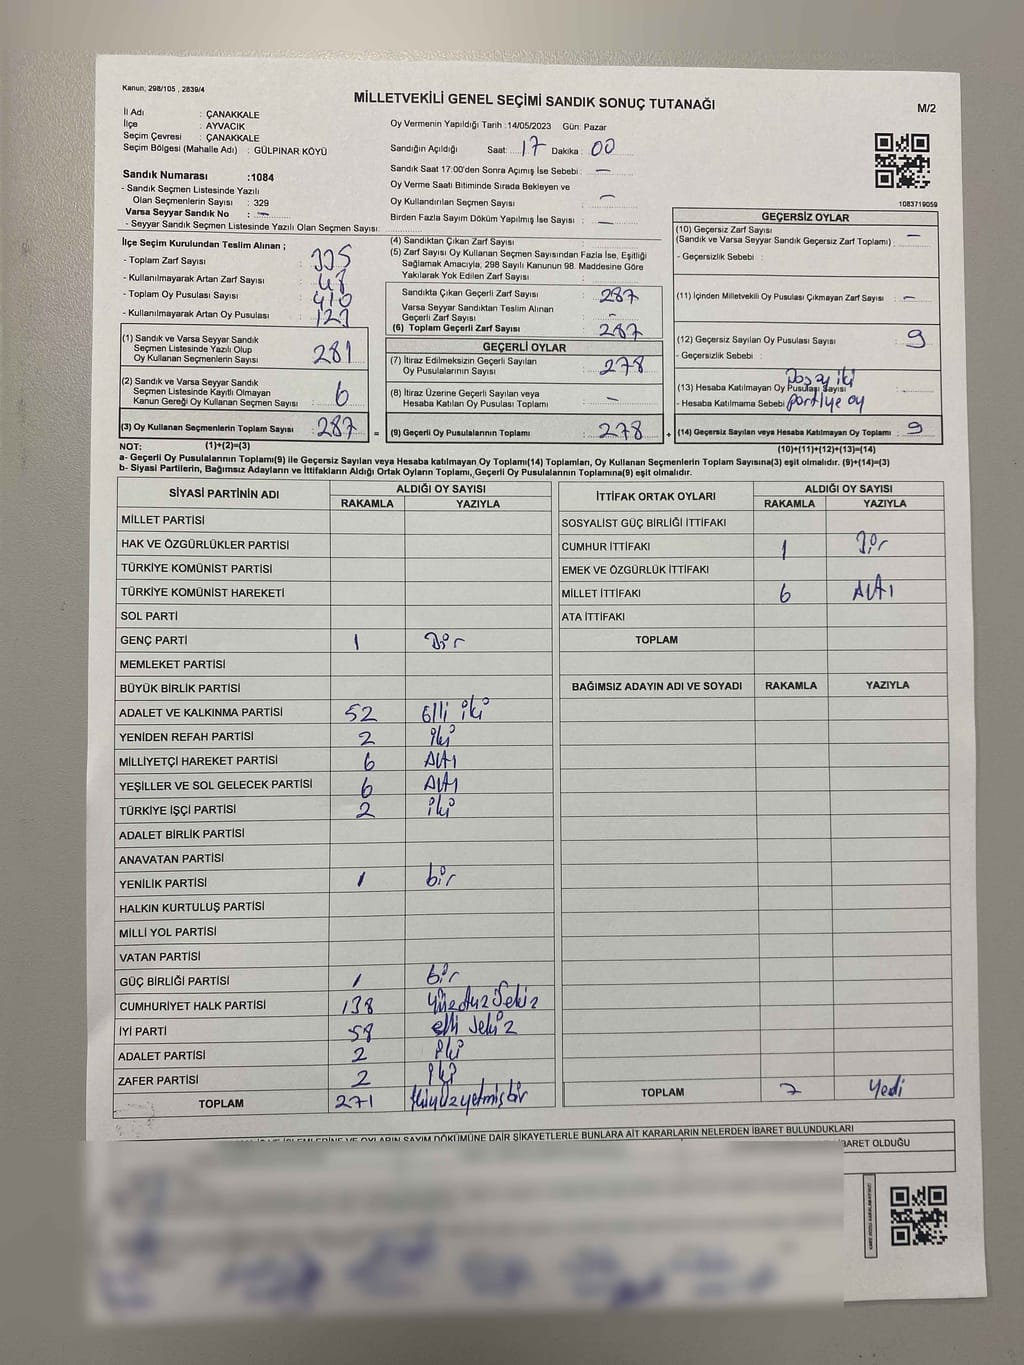 Kanun, 298/105 , 2839/4
MİLLETVEKİLİ GENEL SEÇİMİ SANDIK SONUÇ TUTANAĞI
M/2
İl Adı : ÇANAKKALE
İlçe : AYVACIK
Seçim Çevresi : ÇANAKKALE
Seçim Bölgesi (Mahalle Adı) : GÜLPINAR KÖYÜ
Sandık Numarası :1084
- Sandık Seçmen Listesinde Yazılı
Olan Seçmenlerin Sayısı : 329
Varsa Seyyar Sandık No : —
- Seyyar Sandık Seçmen Listesinde Yazılı Olan Seçmen Sayısı:
Oy Vermenin Yapıldığı Tarih :14/05/2023 Gün: Pazar
Sandığın Açıldığı Saat: 17 Dakika : 00
Sandık Saat 17:00'den Sonra Açımış İse Sebebi : —
Oy Verme Saati Bitiminde Sırada Bekleyen ve
Oy Kullandırılan Seçmen Sayısı : —
Birden Fazla Sayım Döküm Yapılmış İse Sayısı : —
1083719059
İlçe Seçim Kurulundan Teslim Alınan ;
- Toplam Zarf Sayısı : 335
- Kullanılmayarak Artan Zarf Sayısı : 48
- Toplam Oy Pusulası Sayısı : 410
- Kullanılmayarak Artan Oy Pusulası : 123
(1) Sandık ve Varsa Seyyar Sandık
Seçmen Listesinde Yazılı Olup
Oy Kullanan Seçmenlerin Sayısı : 281
(2) Sandık ve Varsa Seyyar Sandık
Seçmen Listesinde Kayıtlı Olmayan
Kanun Gereği Oy Kullanan Seçmen Sayısı : 6
(3) Oy Kullanan Seçmenlerin Toplam Sayısı : 287
(1)+(2)=(3)
(4) Sandıktan Çıkan Zarf Sayısı :
(5) Zarf Sayısı Oy Kullanan Seçmen Sayısından Fazla İse, Eşitliği
Sağlamak Amacıyla, 298 Sayılı Kanunun 98. Maddesine Göre
Yakılarak Yok Edilen Zarf Sayısı :
Sandıkta Çıkan Geçerli Zarf Sayısı : 287
Varsa Seyyar Sandıktan Teslim Alınan
Geçerli Zarf Sayısı : —
(6) Toplam Geçerli Zarf Sayısı : 287
GEÇERLİ OYLAR
(7) İtiraz Edilmeksizin Geçerli Sayılan
Oy Pusulalarının Sayısı : 278
(8) İtiraz Üzerine Geçerli Sayılan veya
Hesaba Katılan Oy Pusulası Toplamı : —
= (9) Geçerli Oy Pusulalarının Toplamı : 278
GEÇERSİZ OYLAR
(10) Geçersiz Zarf Sayısı : —
(Sandık ve Varsa Seyyar Sandık Geçersiz Zarf Toplamı)
- Geçersizlik Sebebi :
(11) İçinden Milletvekili Oy Pusulası Çıkmayan Zarf Sayısı : —
(12) Geçersiz Sayılan Oy Pusulası Sayısı : 9
- Geçersizlik Sebebi :
(13) Hesaba Katılmayan Oy Pusulası Sayısı
- Hesaba Katılmama Sebebi : iki partiye oy
+ (14) Geçersiz Sayılan veya Hesaba Katılmayan Oy Toplamı : 9
(10)+(11)+(12)+(13)=(14)
NOT:
a- Geçerli Oy Pusulalarının Toplamı(9) ile Geçersiz Sayılan veya Hesaba katılmayan Oy Toplamı(14) Toplamları, Oy Kullanan Seçmenlerin Toplam Sayısına(3) eşit olmalıdır. (9)+(14)=(3)
b- Siyasi Partilerin, Bağımsız Adayların ve İttifakların Aldığı Ortak Oyların Toplamı, Geçerli Oy Pusulalarının Toplamına(9) eşit olmalıdır.
SİYASİ PARTİNİN ADI ALDIĞI OY SAYISI
RAKAMLA YAZIYLA
MİLLET PARTİSİ
HAK VE ÖZGÜRLÜKLER PARTİSİ
TÜRKİYE KOMÜNİST PARTİSİ
TÜRKİYE KOMÜNİST HAREKETİ
SOL PARTİ
GENÇ PARTİ 1 Bir
MEMLEKET PARTİSİ
BÜYÜK BİRLİK PARTİSİ
ADALET VE KALKINMA PARTİSİ 52 Elli iki
YENİDEN REFAH PARTİSİ 2 iki
MİLLİYETÇİ HAREKET PARTİSİ 6 Altı
YEŞİLLER VE SOL GELECEK PARTİSİ 6 Altı
TÜRKİYE İŞÇİ PARTİSİ 2 iki
ADALET BİRLİK PARTİSİ
ANAVATAN PARTİSİ
YENİLİK PARTİSİ 1 bir
HALKIN KURTULUŞ PARTİSİ
MİLLİ YOL PARTİSİ
VATAN PARTİSİ
GÜÇ BİRLİĞİ PARTİSİ 1 bir
CUMHURİYET HALK PARTİSİ 138 Yüzotuz Sekiz
İYİ PARTİ 58 elli Sekiz
ADALET PARTİSİ 2 iki
ZAFER PARTİSİ 2 iki
TOPLAM 271 ikiyüzyetmişbir
İTTİFAK ORTAK OYLARI ALDIĞI OY SAYISI
RAKAMLA YAZIYLA
SOSYALİST GÜÇ BİRLİĞİ İTTİFAKI
CUMHUR İTTİFAKI 1 Bir
EMEK VE ÖZGÜRLÜK İTTİFAKI
MİLLET İTTİFAKI 6 Altı
ATA İTTİFAKI
TOPLAM
BAĞIMSIZ ADAYIN ADI VE SOYADI RAKAMLA YAZIYLA
TOPLAM 7 Yedi
OYLARIN SAYIM DÖKÜMÜNE DAİR ŞİKAYETLERLE BUNLARA AİT KARARLARIN NELERDEN İBARET BULUNDUKLARI
İBARET OLDUĞU